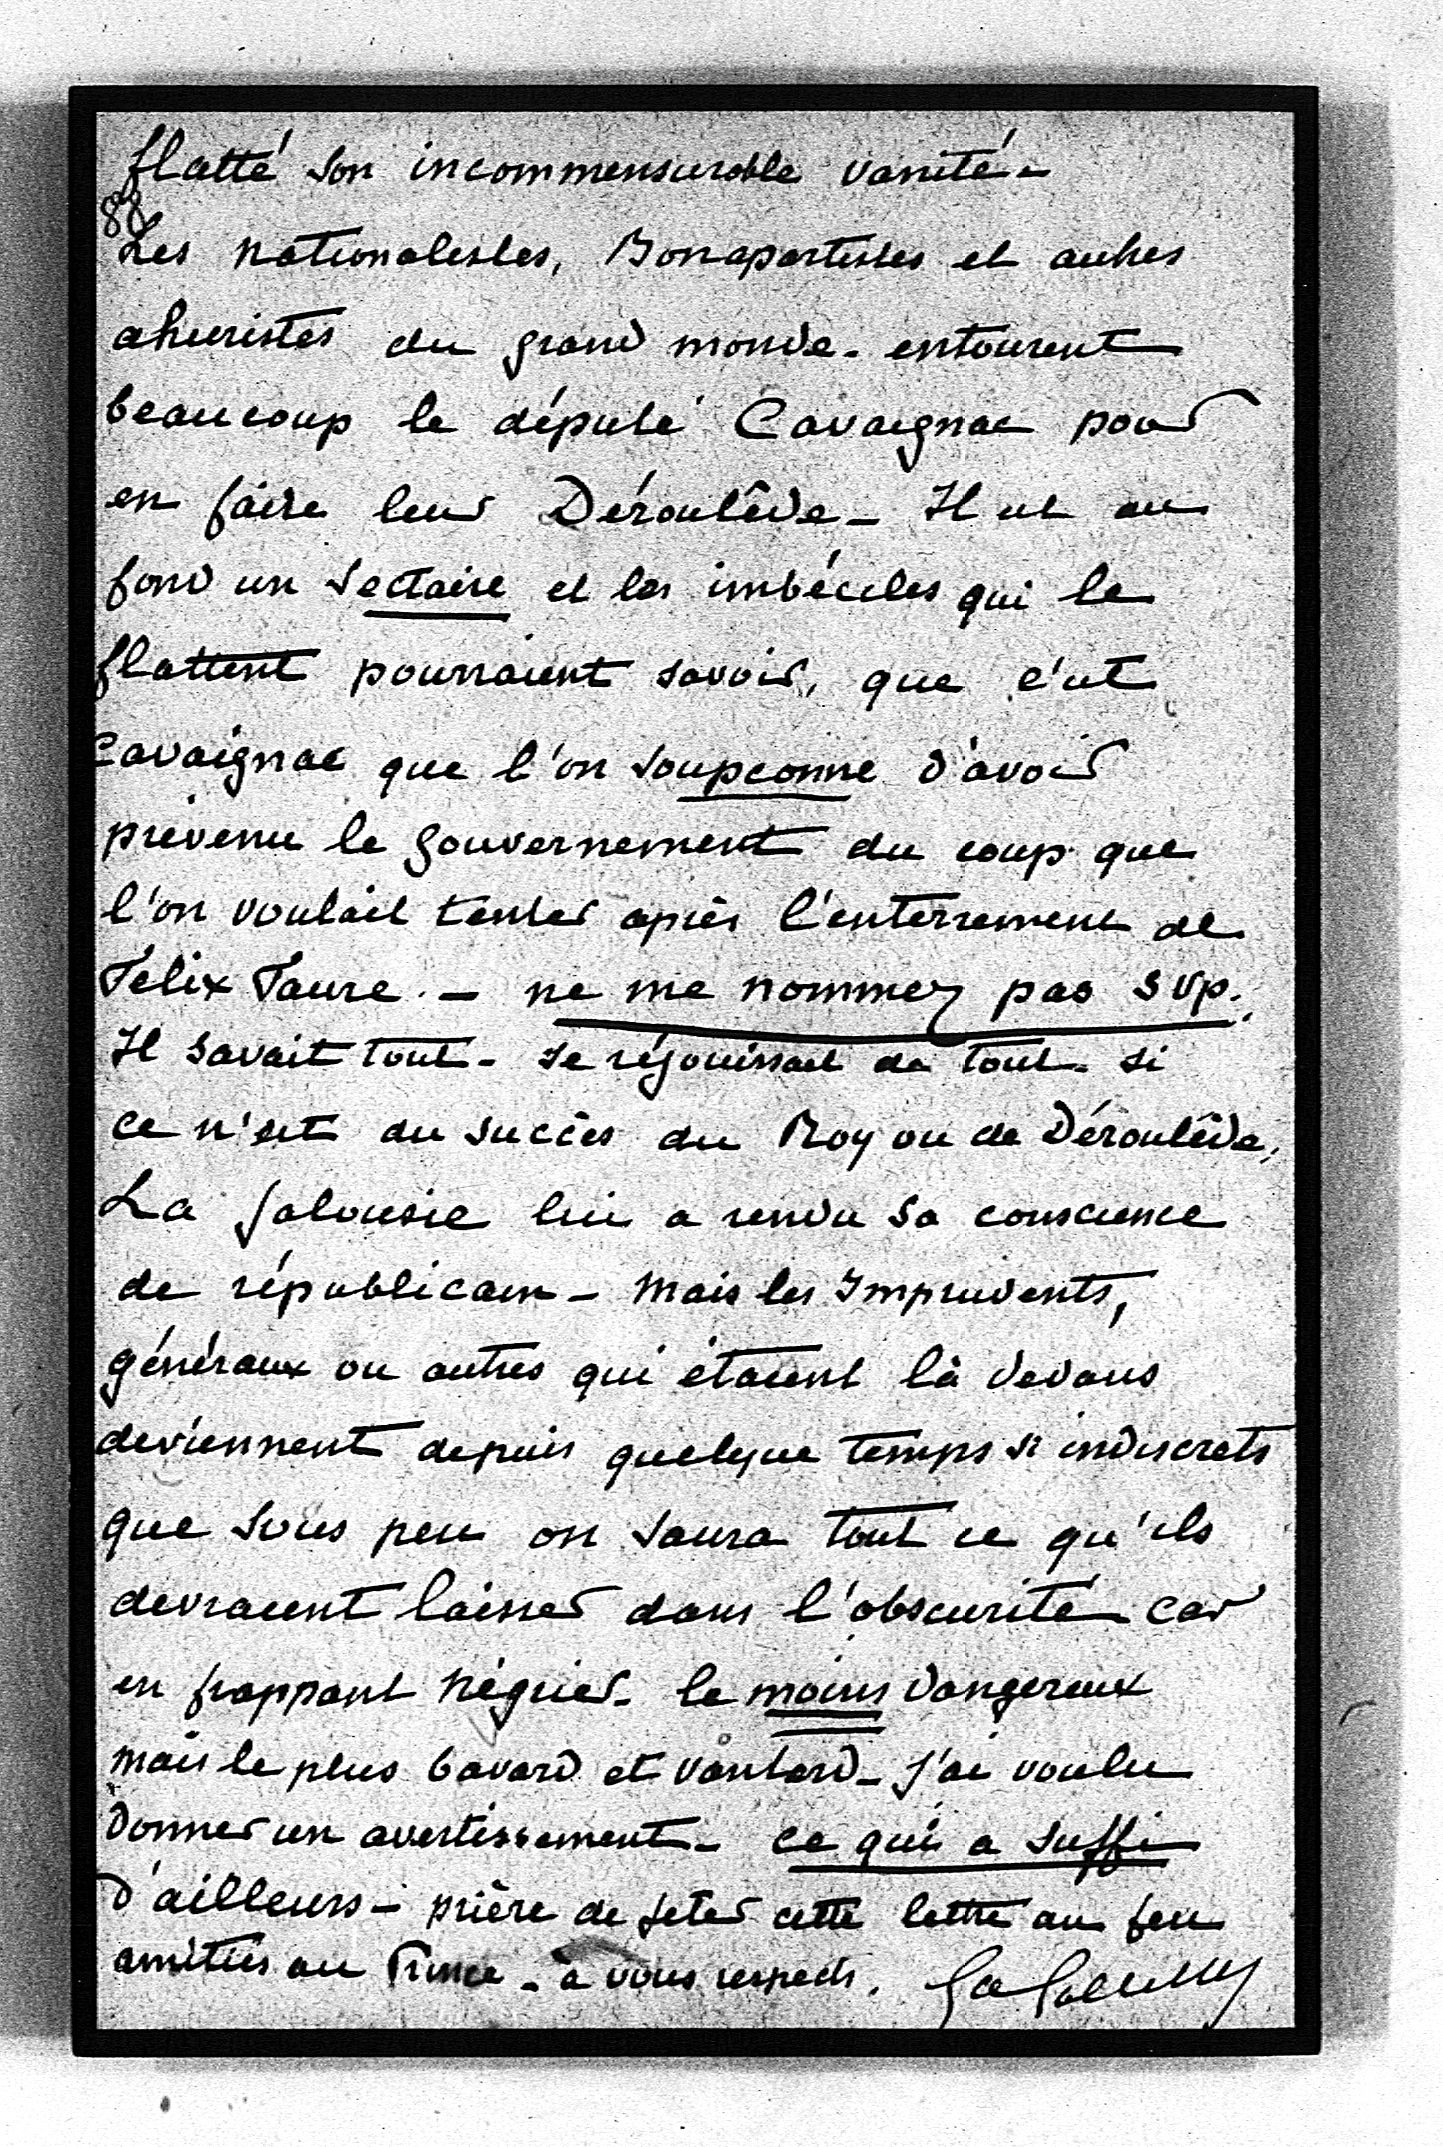 flatté son incommensurable vanité.
88
Les nationalistes, Bonapartistes et autres
ahuristes du grand monde. entourent
beaucoup le député Cavaignac pour
en faire leur Déroulède - Il est au
fond un sectaire et les imbéciles qui le
flattent pourraient savoir, que c'est
Cavaignac que l'on soupçonne d'avoir
prévenu le gouvernement du coup que
l'on voulait tenter après l'enterrement de
Félix Faure. - ne me nommez pas svp.
Il savait tout - se réjouissait de tout. si
ce n'est du succès du Roy ou de Déroulède,
La jalousie lui a rendu sa conscience
de républicain - Mais les Imprudents,
généraux ou autres qui étaient là dedans
deviennent depuis quelque temps si indiscrets
que sous peu on saura tout ce qu'ils
devraient laisser dans l'obscurité car
en frappant Négrier. le moins dangereux
mais le plus bavard et vantard - j'ai voulu
donner un avertissement. ce qui a suffi
d'ailleurs - prière de jeter cette lettre au feu
amitiés au Prince - à vous respects.